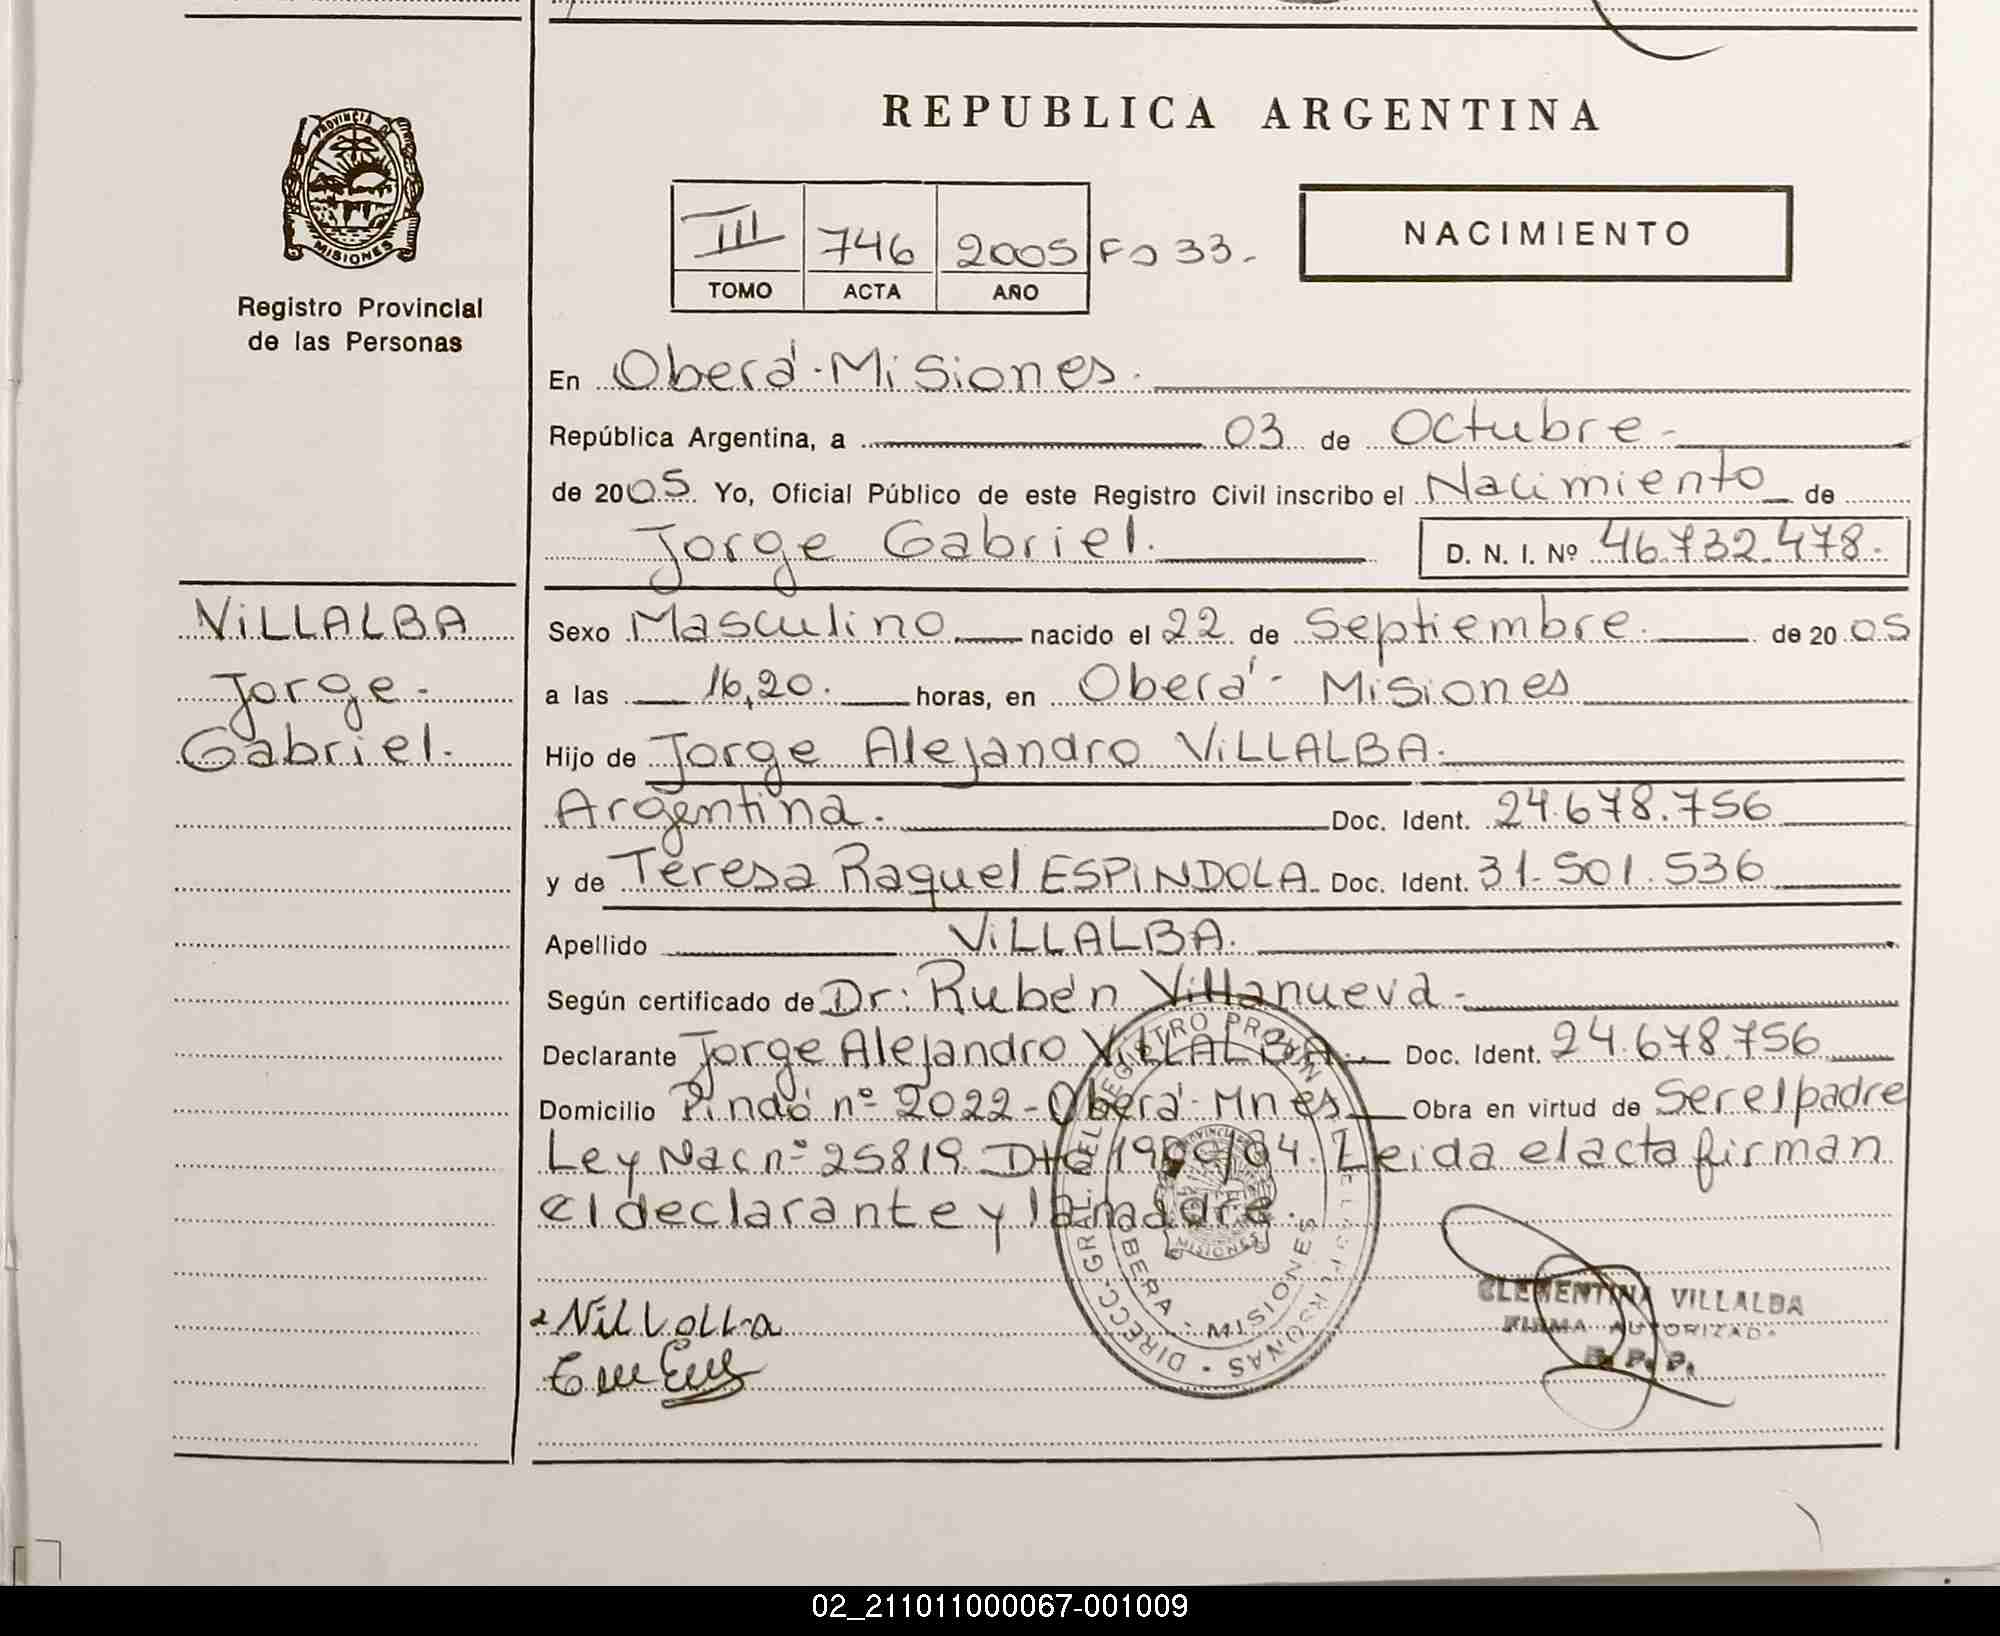 REPUBLICA ARGENTINA
PROVINCIA DE
MISIONES
Registro Provincial
de las Personas
III 746 2005 Fo 33.
TOMO ACTA AÑO
NACIMIENTO
En Oberá - Misiones.
República Argentina, a 03 de Octubre
de 2005 Yo, Oficial Público de este Registro Civil inscribo el Nacimiento de
Jorge Gabriel. D. N. I. Nº 46.732.478.
VILLALBA
Jorge
Gabriel.
Sexo Masculino nacido el 22 de Septiembre. de 2005
a las 16,20. horas, en Oberá - Misiones
Hijo de Jorge Alejandro VILLALBA.
Argentina. Doc. Ident. 24.678.756
y de Teresa Raquel ESPINDOLA Doc. Ident. 31.501.536
Apellido VILLALBA.
Según certificado de Dr: Rubén Villanueva
Declarante Jorge Alejandro VILLALBA Doc. Ident. 24.678.756
Domicilio Pindó nº 2022 - Oberá - Mnes Obra en virtud de Ser el padre
Ley Nac nº 25819 Dto 1900/04. Leida el acta firman
el declarante y la madre.
DIRECC. GRAL. DEL REGISTRO PROVIN
OBERA - MISIONES
MISIONES
CLEMENTINA VILLALBA
FIRMA AUTORIZADA
R. P. P.
02_211011000067-001009